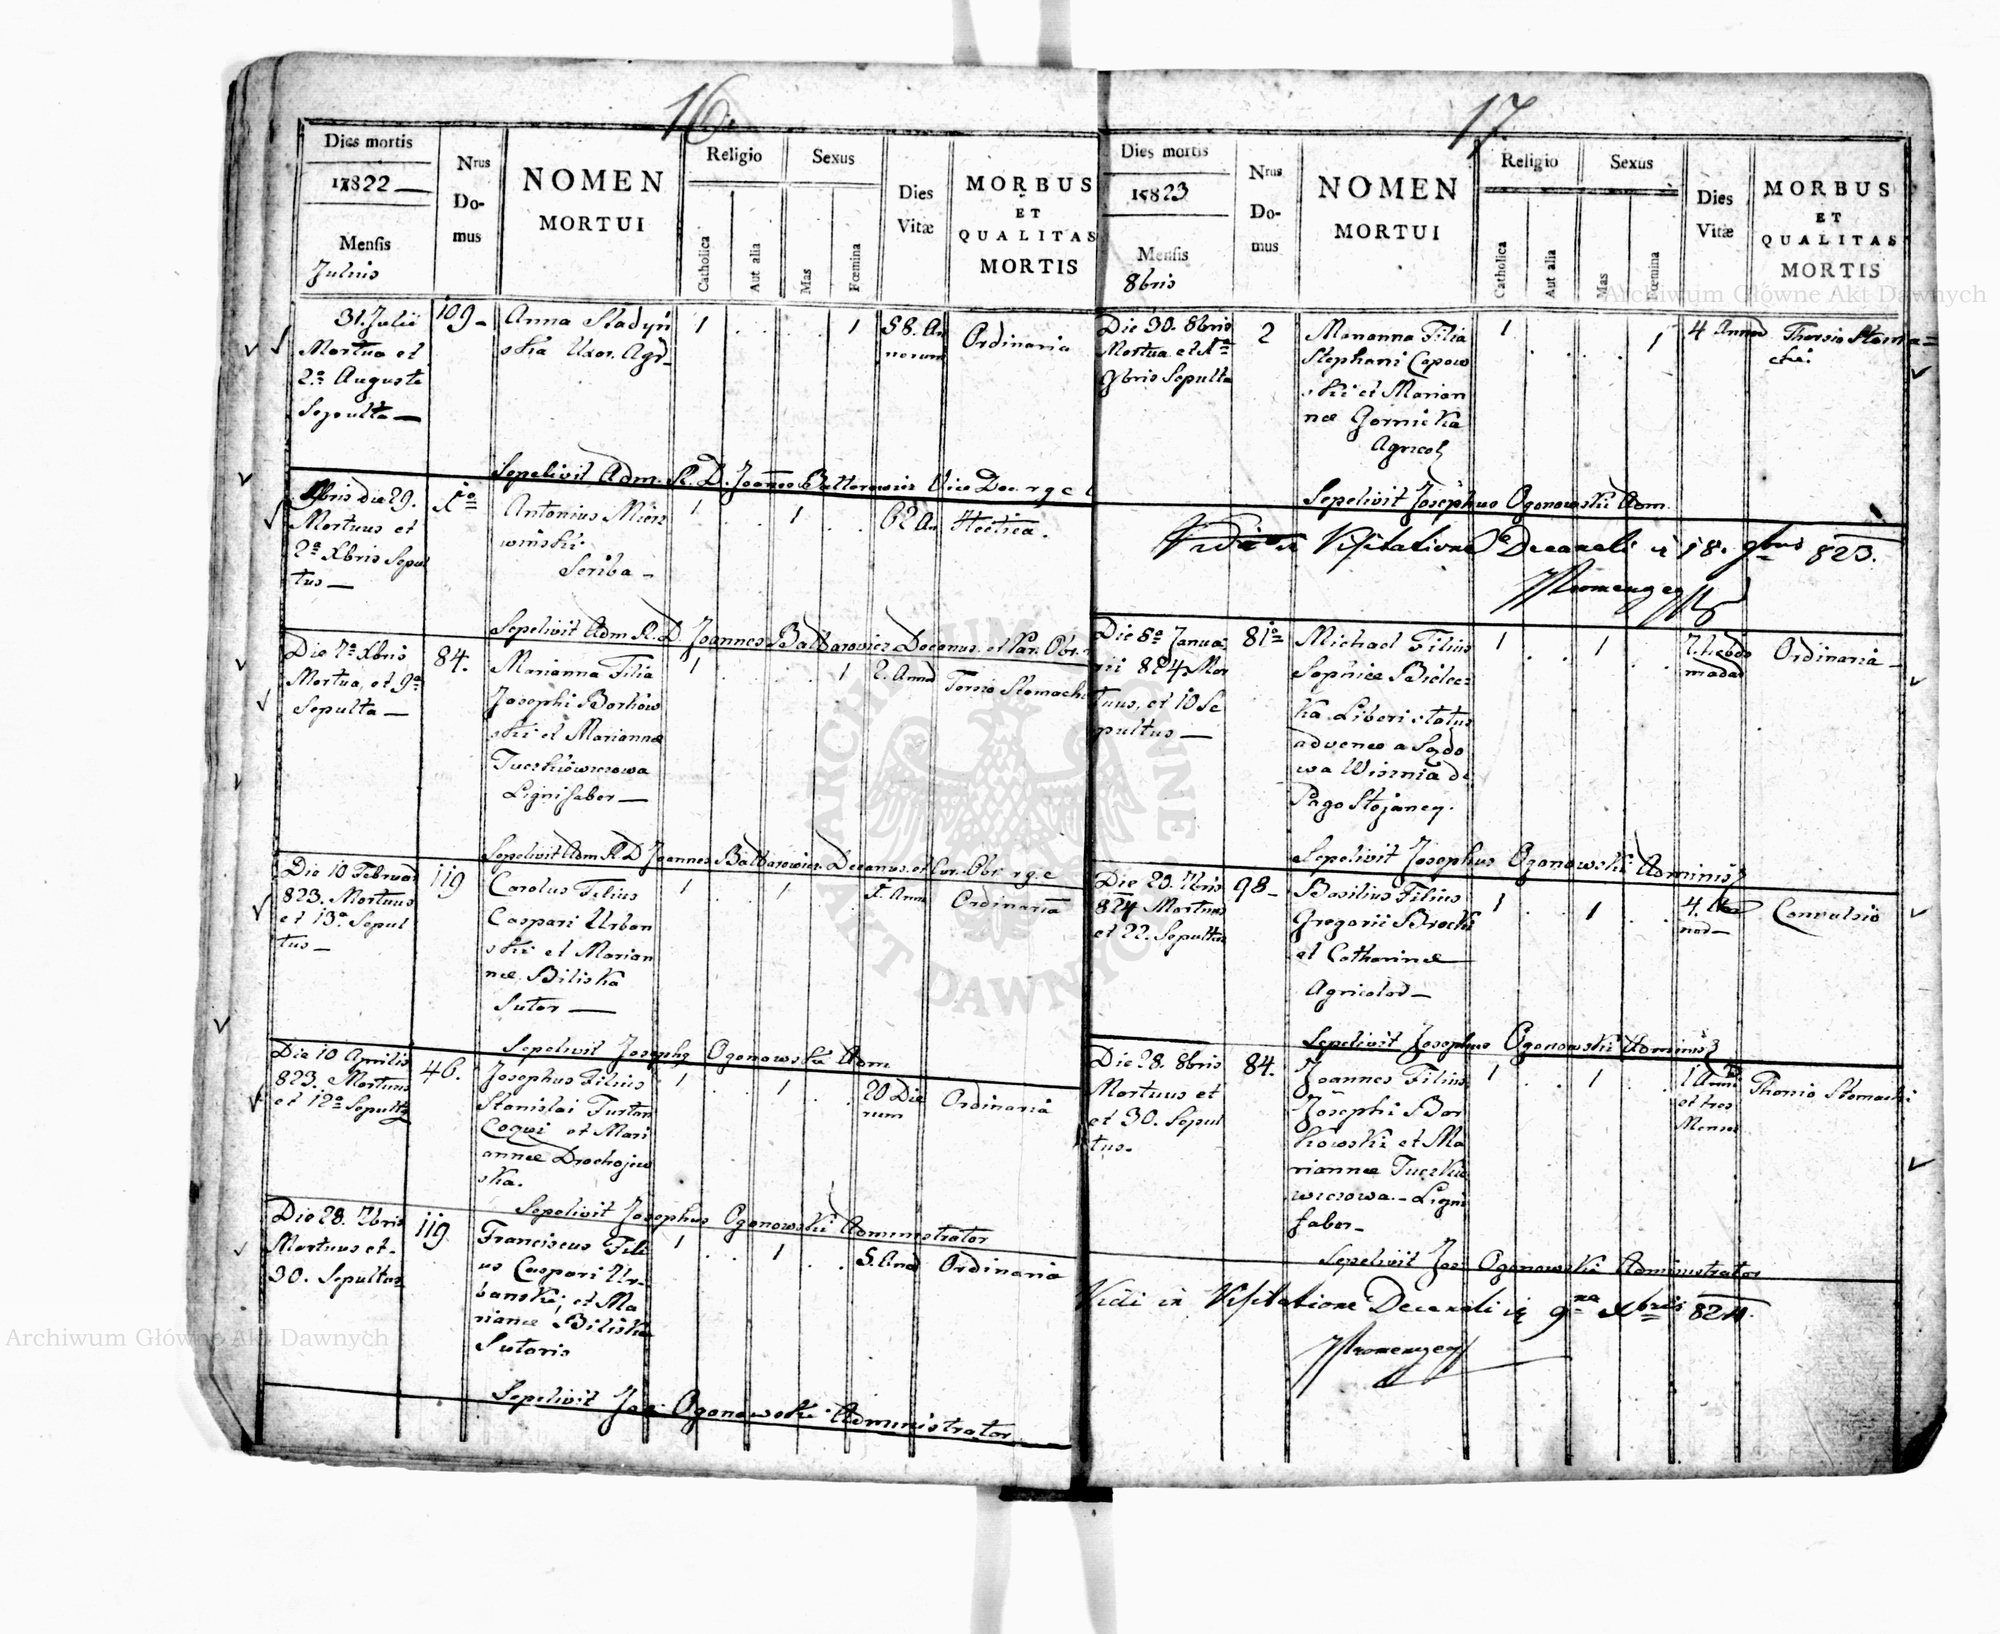 16.
Dies mortis
Nrus
Do-
mus
NOMEN
MORTUI
Religio
Sexus
Dies
Vitæ
MORBUS
ET
QUALITAS
MORTIS
1822
Mensis
Julius
Catholica
Aut alia
Mas
Fœmina
31. Julii
Mortua et
2a Auguste
Sepulta
109
Anna Stadyń
ska Uxor. Agr
1 . . 1
58. An
norum
Ordinaria
Sepelivit Adm. R. D. Joannes Battarowicz Vice Dec. r g c
Xbris die 29.
Mortuus et
2a Xbris Sepul
tus
Antonius Mierz
wiński
Scriba
1 . 1 .
62 An
Hectica.
Sepelivit Adm R. D Joannes Battarowicz Decanus et Par. Obr.
Die 7a Xbris
Mortua, et 9a
Sepulta
84.
Marianna Filia
Josephi Borkow
ski et Mariannæ
Tuczkiewiczowa
Lignifaber
1 . . 1
2. Annd
Torsio Stomach
Sepelivit Adm R D Joannes Battarowicz Decanus et Par. Obr. r g c
Die 10 Februar
823. Mortuus
et 13a Sepul
tus
119
Carolus Filius
Caspari Urban
ski et Marian
næ Biliska
Sutor
1 . 1 .
Ordinaria
Sepelivit Joseph Ogonowski Adm
Die 10 Aprilis
823. Mortuus
et 12a Sepult
46.
Josephus Filius
Stanislai Furtan
Coqui et Mari
annæ Drohojew
ska.
1 . 1 .
20 Die
rum
Ordinaria
Sepelivit Josephus Ogonowski Administrator
Die 28. 7bris
Mortuus et
30. Sepultus
119
Franciscus Fili
us Caspari Ur-
banski, et Ma
riannæ Biliska
Sutoris
1 . 1 .
5. And
Ordinaria
Sepelivit Jos. Ogonowski Administrator
17
Dies mortis
Nrus
Do-
mus
NOMEN
MORTUI
Religio
Sexus
Dies
Vitæ
MORBUS
ET
QUALITAS
MORTIS
1823
Mensis
8bris
Catholica
Aut alia
Mas
Fœmina
Die 30. 8bris
Mortua et 1a
9bris Sepulta
2
Marianna Filia
Stephani Capow
ski et Marian
næ Gornicka
Agricol
1 . . 1
4 Annod
Thorsio Stoma=
chi.
Sepelivit Josephus Ogonowski Adm.
Visitatione Decanali 18. 9bris 823.
Die 8a Janua
rii 824 Mor
tuus, et 10 Se
pultus
81
Michael Filius
Sophiæ Bielec
ka Liberi status
advenæ a Sądo
wa Wisznia de
Pago Stojancy.
1 . 1 .
7. hebdo
madad
Ordinaria
Sepelivit Josephus Ogonowski Adminis
Die 20. 7bris
824 Mortuus
et 22. Sepultus
98
Basilius Filius
Gregorii Brocki
et Catharinæ
Agricolod
1 . 1 .
Convulsio
Sepelivit Josephus Ogonowski Adminis
Die 28. 8bris
Mortuus et
et 30. Sepul
tus.
84.
Joannes Filius
Josephi Bor
kowski et Ma
riannæ Tuczkie
wiczowa. Ligni
faber
1 . 1 .
1 Anni
et tres
Menses
Thorsio Stomachi
Sepelivit Jos. Ogonowski Administrator
Vidi in Visitatione Decanali 9na Xbris 824.
Archiwum Główne Akt Dawnych
ARCHIWUM GŁÓWNE
AKT DAWNYCH
Archiwum Główne Akt Dawnych